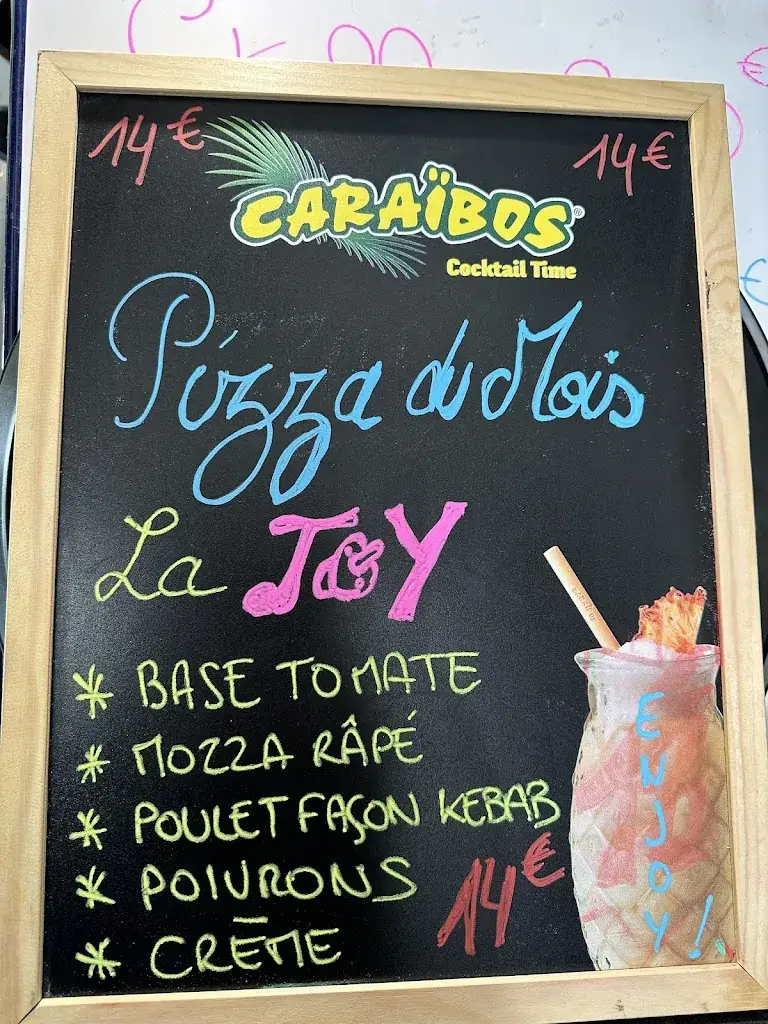 14€
14€
CARAÏBOS®
Cocktail Time
Pizza du Mois
La JOY
* BASE TOMATE
* MOZZA RÂPÉ
* POULET FAÇON KEBAB
* POIVRONS
* CRĒME
14€
ENJOY!